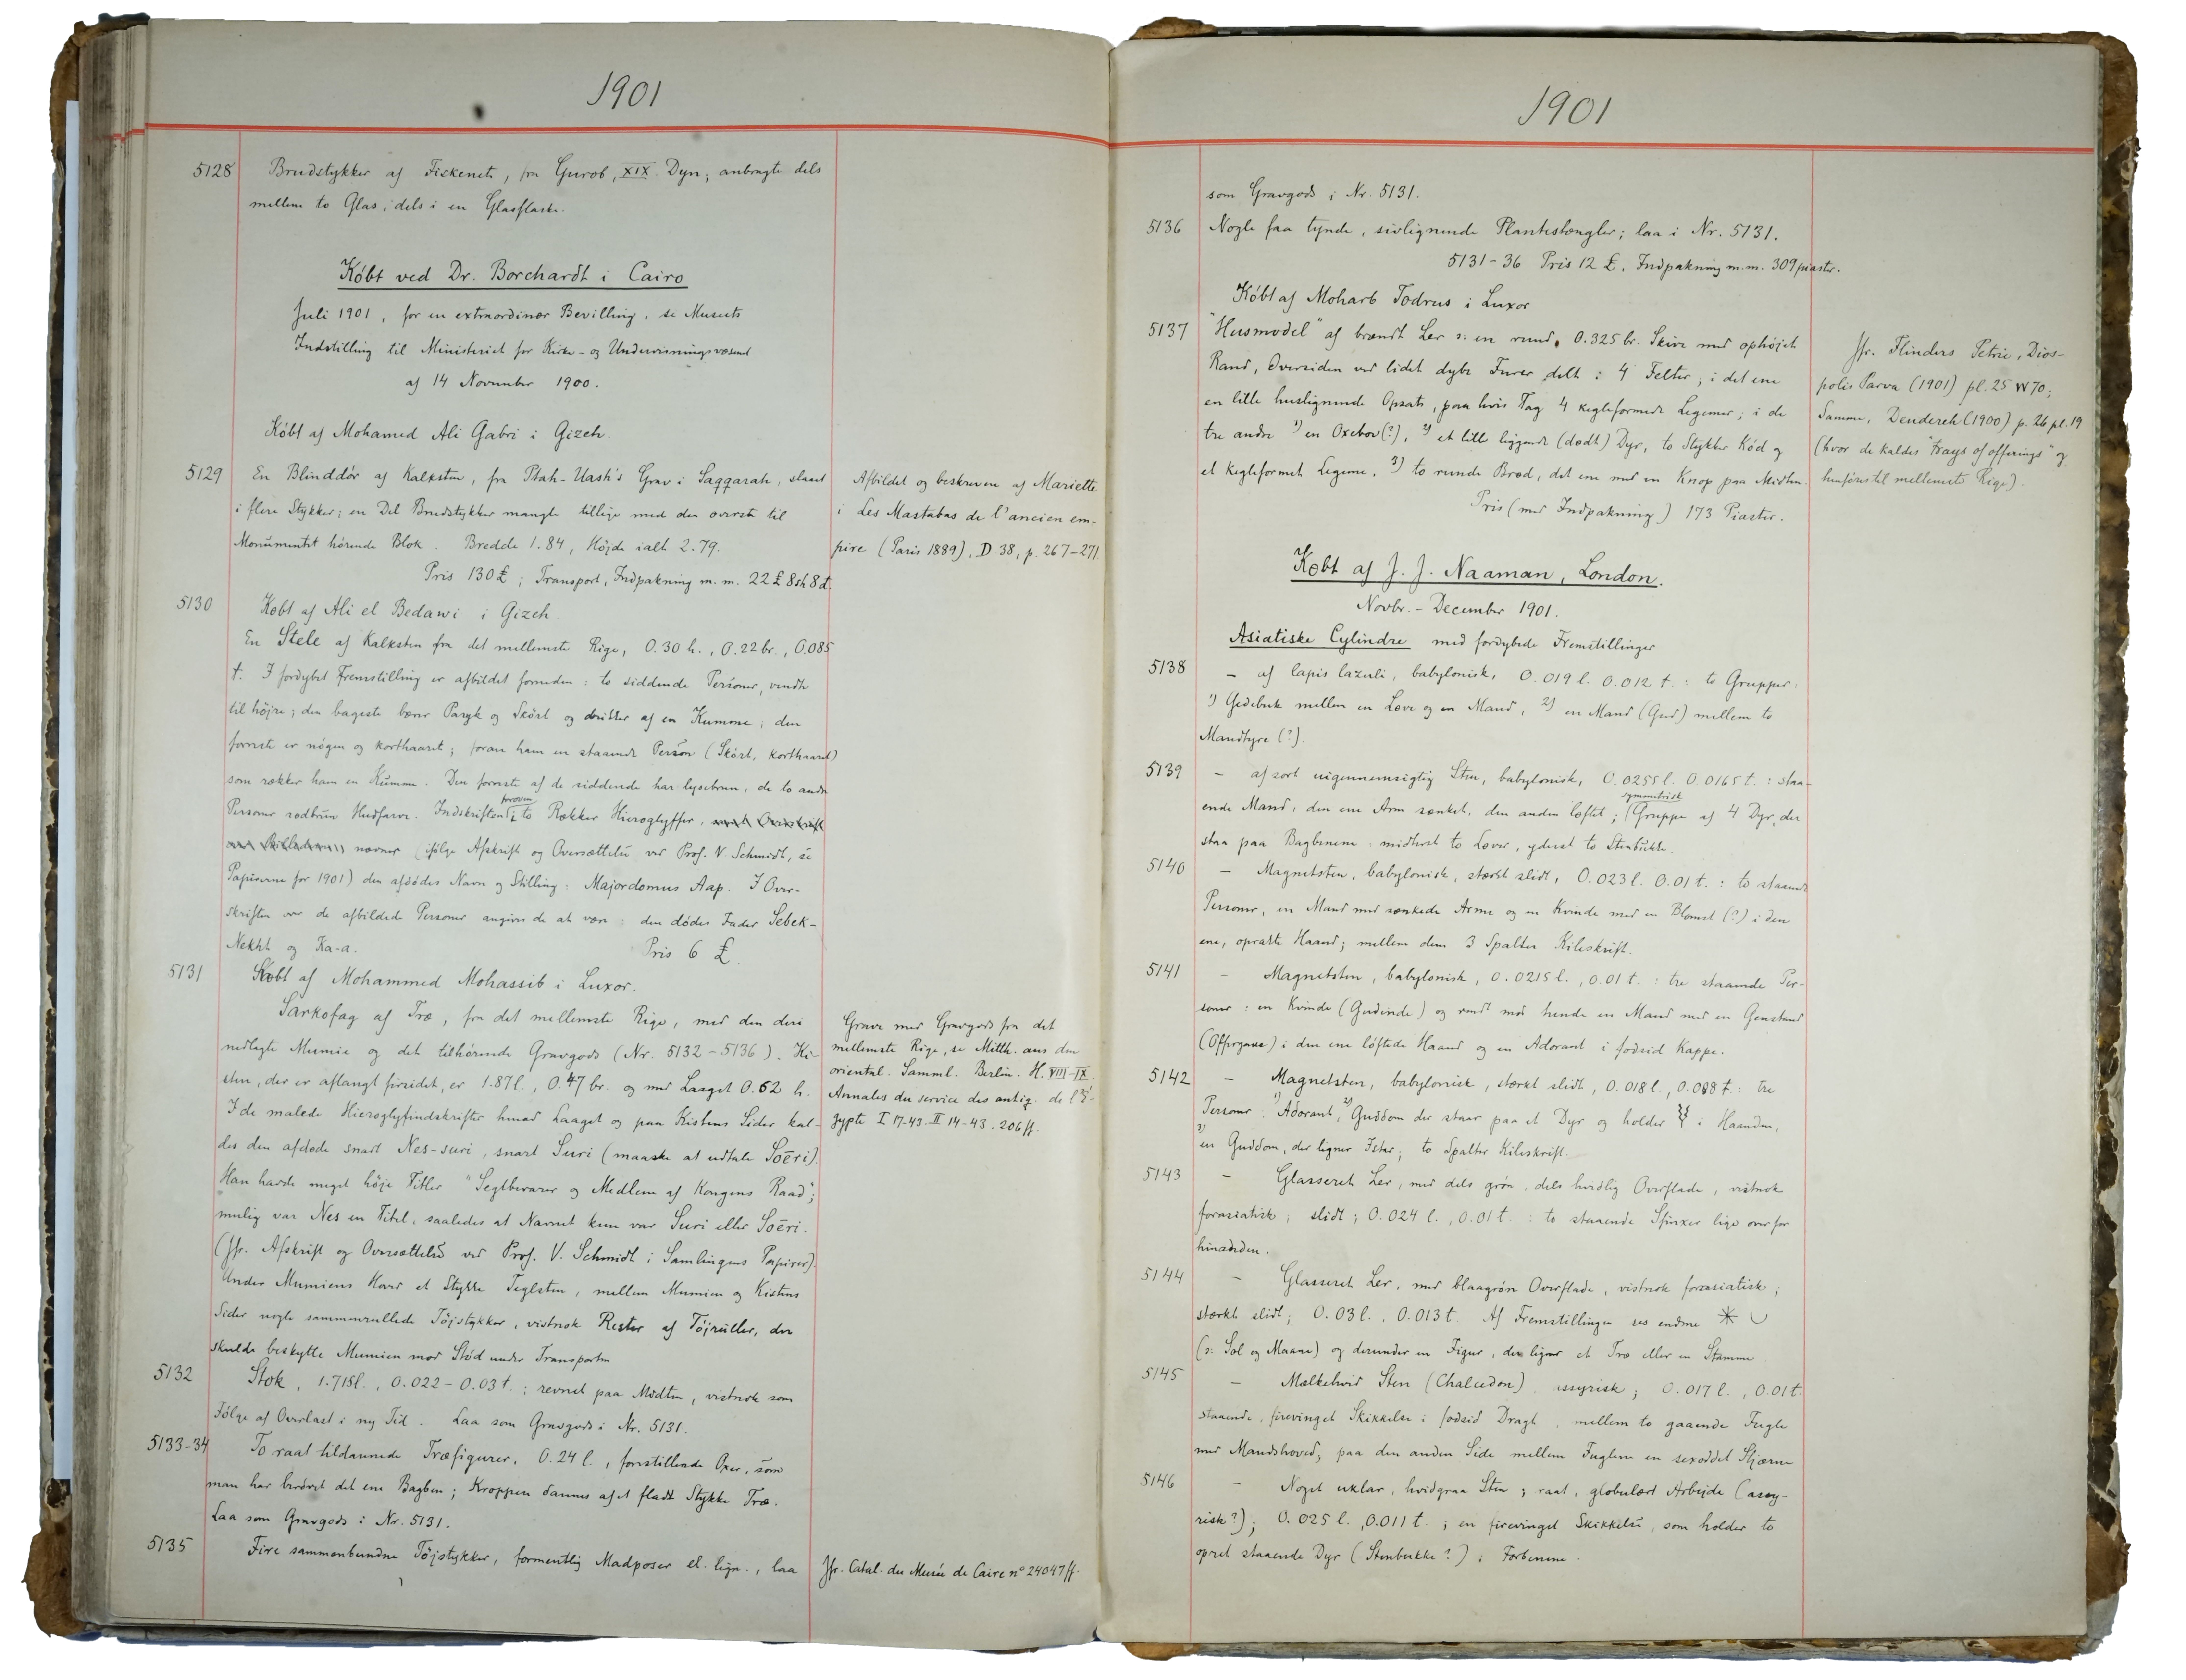 1901
5128 Brudstykker af Fiskenet, fra Gurob, XIX. Dyn; anbragte dels
mellem to Glas, dels i en Glasflaske.
Købt ved Dr. Borchardt i Cairo
Juli 1901, for en extraordinær Bevilling, se Museets
Indstilling til Ministeriet for Kirke- og Undervisningsvæsenet
af 14 November 1900.
Købt af Mohamed Ali Gabri i Gizeh.
5129 En Blinddör af Kalksten, fra Ptah-Uash's Grav i Saqqarah, slaaet
i flere Stykker; en Del Brudstykker mangle tillige med den øverste til
Monumentet hörende Blok. Bredde 1.84, Höjde ialt 2.79.
Pris 130 £; Transport, Indpakning m. m. 22 £ 8 sh 8 d.
Afbildet og beskreven af Mariette
i Les Mastabas de l'ancien em-
pire (Paris 1889), D 38, p. 267-271
5130 Købt af Ali el Bedawi i Gizeh
En Stele af Kalksten fra det mellemste Rige, 0.30 h., 0.22 br., 0.085
t. I fordybet Fremstilling er afbildet forneden: to siddende Personer, vendte
til höjre; den bageste bærer Paryk og Skört og drikker af en Kumme; den
forreste er nögen og korthaaret; foran ham en staaende Person (Skört, korthaaret)
som rækker ham en Kumme. Den forreste af de siddende har lysebrun, de to andre
Personer rødbrun Hudfarve. Indskriften foroven i to Rækker Hieroglyffer,
nævner (ifølge Afskrift og Oversættelse ved Prof. V. Schmidt, se
Papirerne for 1901) den afdødes Navn og Stilling: Majordomus Aap. I Over-
skriften over de afbildede Personer angives de at være: den dødes Fader Sebek-
Nekht og Ka-a. Pris 6 £.
5131 Købt af Mohammed Mohassib i Luxor.
Sarkofag af Træ, fra det mellemste Rige, med den deri
nedlagte Mumie og det tilhörende Gravgods (Nr. 5132-5136). Ki-
sten, der er aflangt firsidet, er 1.87 l., 0.47 br. og med Laaget 0.62 h.
I de malede Hieroglyfindskrifter hvad Laaget og paa Kistens Sider kal-
des den afdøde snart Nes-suri, snart Suri (maaske at udtale Soēri).
Han havde meget höje Titler "Seglbevarer og Medlem af Kongens Raad";
mulig var Nes en Titel, saaledes at Navnet kun var Suri eller Soēri.
(Jfr. Afskrift og Oversættelse ved Prof. V. Schmidt i Samlingens Papirer).
Under Mumiens Hoved et Stykke Teglsten, mellem Mumien og Kistens
Sider nogle sammenrullede Töjstykker, vistnok Rester af Töjruller, der
skulde beskytte Mumien mod Stöd under Transporten
Grave med Gravgods fra det
mellemste Rige, se Mitth. aus den
oriental. Samml. Berlin. H. VIII-IX.
Annales du service des antiq. de l'É-
gypte I 17-43. II 14-43. 206 ff.
5132 Stok, 1.715 l., 0.022-0.03 t.; revnet paa Midten, vistnok som
Følge af Overlast i ny Tid. Laa som Gravgods i Nr. 5131.
5133-34 To raat tildannede Træfigurer, 0.24 l., forestillende Oxer, som
man har berövet det ene Bagben; Kroppen dannes af et fladt Stykke Træ.
Laa som Gravgods i Nr. 5131.
5135 Fire sammenbundne Töjstykker, formentlig Madposer el. lign., laa
Jfr. Catal. du Musée de Caire n° 24047 ff.
1901
som Gravgods i Nr. 5131.
5136 Nogle faa tynde, sivlignende Plantestængler; laa i Nr. 5131.
5131-36 Pris 12 £. Indpakning m.m. 309 piaster.
Købt af Moharb Todrus i Luxor
5137 "Husmodel" af brændt Ler ɔ: en rund, 0.325 br. Skive med ophöjet
Rand, Oversiden ved lidet dybe Furer delt i 4 Felter; i det ene
en lille huslignende Opsats, paa hvis Tag 4 kegleformede Legemer; i de
tre andre 1) en Oxebov(?), 2) et lille liggende (dødt) Dyr, to Stykker Kød og
et kegleformet Legeme, 3) to runde Brød, det ene med en Knop paa Midten.
Pris (med Indpakning) 173 Piaster.
Jfr. Flinders Petrie, Dios-
polis Parva (1901) pl. 25 W 70;
Samme, Dendereh (1900) p. 26 pl. 19
(hvor de kaldes "trays of offerings" og
henføres til mellemste Rige).
Købt af J. J. Naaman, London.
Novbr. - December 1901.
Asiatiske Cylindre med fordybede Fremstillinger
5138 - af lapis lazuli, babylonisk, 0.019 l. 0.012 t.: to Grupper:
1) Gedebuk mellem en Løve og en Mand, 2) en Mand (Gud) mellem to
Mandtyre (?).
5139 - af sort uigennemsigtig Sten, babylonisk, 0.0255 l. 0.0165 t.: staa-
ende Mand, den ene Arm sænket, den anden løftet; symmetrisk Gruppe af 4 Dyr, der
staa paa Bagbenene: midterst to Løver, yderst to Stenbukke.
5140 - Magnetsten, babylonisk, stærkt slidt, 0.023 l. 0.01 t.: to staaende
Personer, en Mand med sænkede Arme og en Kvinde med en Blomst (?) i den
ene, oprakte Haand; mellem dem 3 Spalter Kileskrift.
5141 - Magnetsten, babylonisk, 0.0215 l., 0.01 t.: tre staaende Per-
soner: en Kvinde (Gudinde) og vendt mod hende en Mand med en Genstand
(Offergave) i den ene löftede Haand og en Adorant i fodsid Kappe.
5142 - Magnetsten, babylonisk, stærkt slidt, 0.018 l., 0.008 t.: tre
Personer: 1) Adorant, 2) Guddom der staar paa et Dyr og holder i Haanden,
3) en Guddom, der ligner Istar; to Spalter Kileskrift.
5143 - Glasseret Ler, med dels grön, dels hvidlig Overflade, vistnok
forasiatisk; slidt; 0.024 l., 0.01 t.: to staaende Sfinxer lige over for
hinanden.
5144 - Glasseret Ler, med blaagrøn Overflade, vistnok forasiatisk;
stærkt slidt; 0.03 l., 0.013 t. Af Fremstillingen ses endnu
(ɔ: Sol og Maane) og derunder en Figur, der ligner et Træ eller en Stamme.
5145 - Mælkehvid Sten (Chalcedon), assyrisk; 0.017 l., 0.01 t.
staaende, firevinget Skikkelse i fodsid Dragt, mellem to gaaende Fugle
med Mandshoved; paa den anden Side mellem Fuglene en sexoddet Stjærne
5146 - Noget uklar, hvidgraa Sten; raat, globulært Arbejde (assy-
risk?); 0.025 l., 0.011 t.; en firevinget Skikkelse, som holder to
opret staaende Dyr (Stenbukke?) i Forbenene.